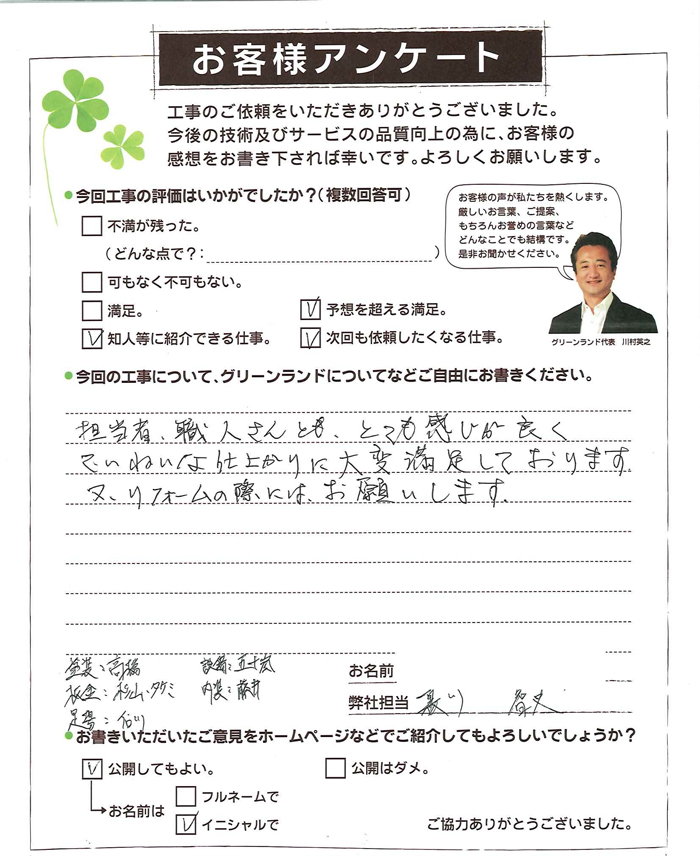 お客様アンケート
工事のご依頼をいただきありがとうございました。
今後の技術及びサービスの品質向上の為に、お客様の
感想をお書き下されば幸いです。よろしくお願いします。
今回工事の評価はいかがでしたか?(複数回答可)
不満が残った。
(どんな点で?: )
可もなく不可もない。
満足。
予想を超える満足。
知人等に紹介できる仕事。
次回も依頼したくなる仕事。
お客様の声が私たちを熱くします。
厳しいお言葉、ご提案、
もちろんお誉めの言葉など
どんなことでも結構です。
是非お聞かせください。
グリーンランド代表 川村英之
今回の工事について、グリーンランドについてなどご自由にお書きください。
担当者、職人さんとも、とても感じが良く
ていねいな仕上がりに大変満足しております。
又、リフォームの際には、お願いします。
塗装:高橋
設備:五十嵐
板金:杉山・タケミ
内装:藤井
足場:
お名前
弊社担当
お書きいただいたご意見をホームページなどでご紹介してもよろしいでしょうか?
公開してもよい。
公開はダメ。
お名前は
フルネームで
イニシャルで
ご協力ありがとうございました。